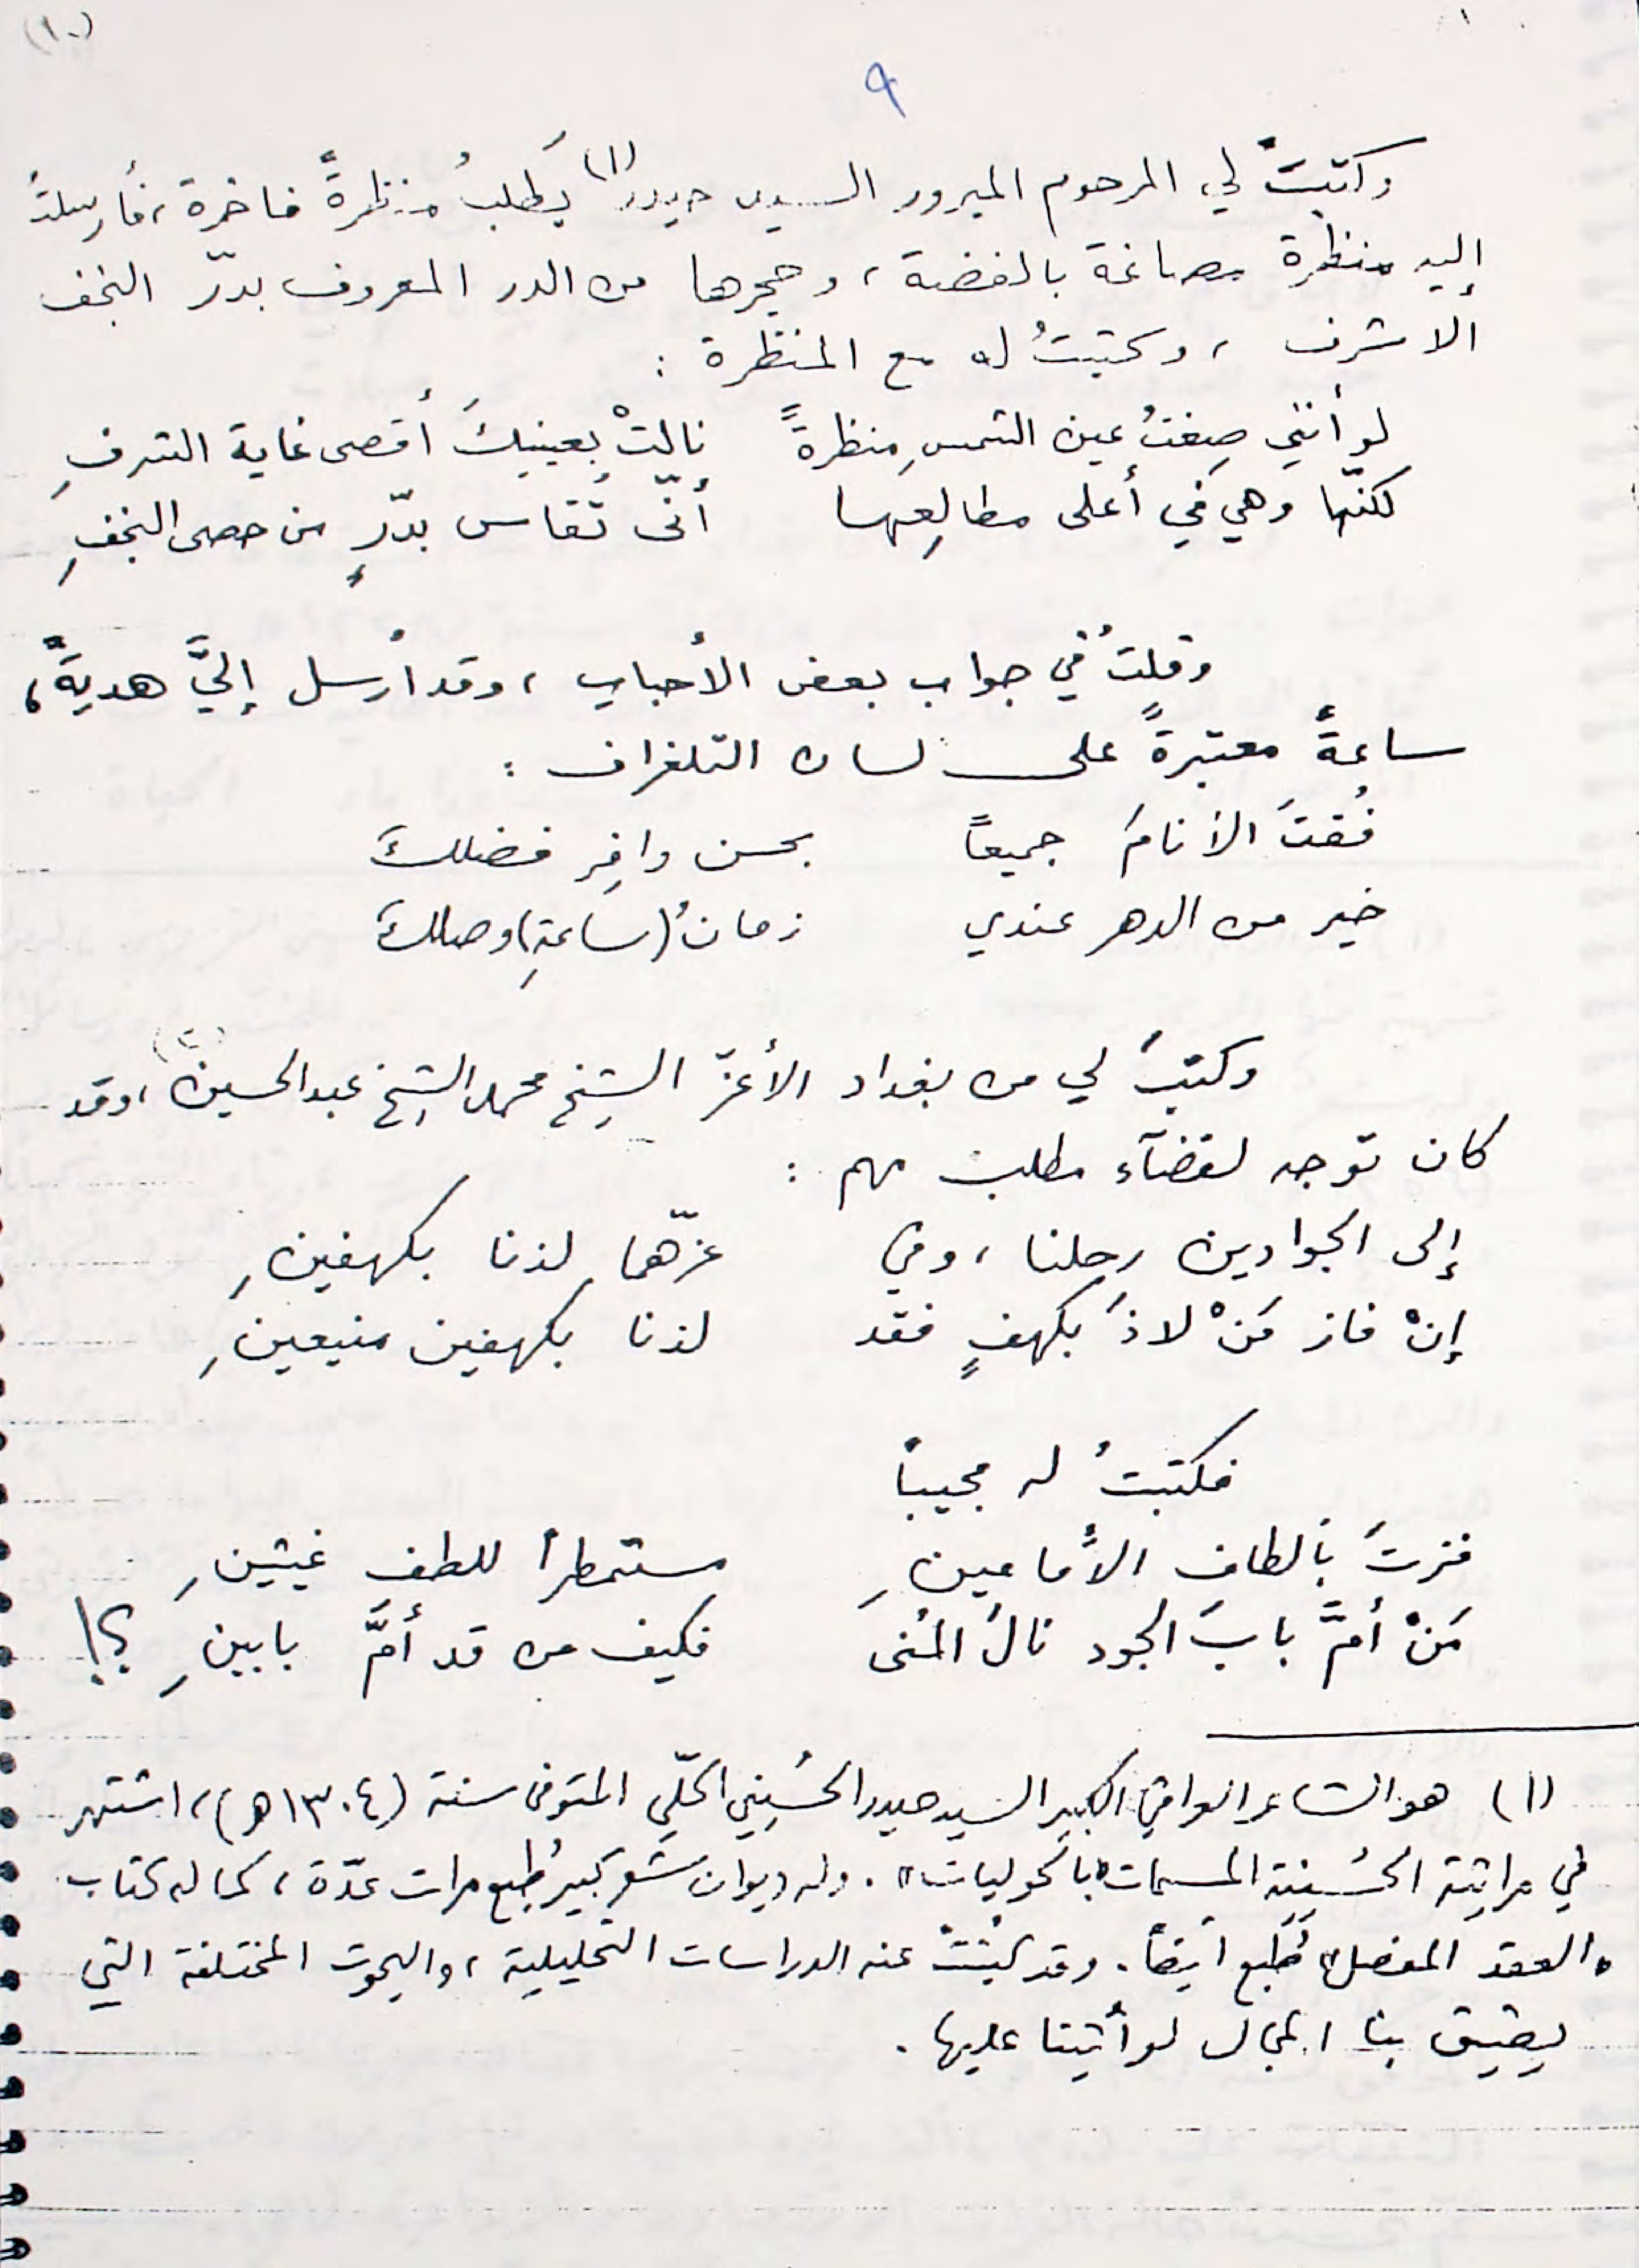 (١٠)
٩
وكتبَ لي المرحوم المبرور السيد حيدر(١) يَطلبُ منظرةً فاخرة، فأرسلتُ
إليه منظرة مصاغة بالفضة، وحجرها من الدر المعروف بدرّ النجف
الاشرف، وكتبتُ له مع المنظرة :
لو أنني صغتُ عين الشمسِ منظرةً نالتْ بعينيكَ أقصى غاية الشرفِ
لكنّها وهي في أعلى مطالِعِها أنّى تُقاس بدّرٍ من حصى النجفِ
وقلتُ في جواب بعض الأحباب، وقد أرسل إليَّ هديةً،
ساعةً معتبرةً على لسان التلغراف :
فُقتَ الأنامَ جميعاً بحسن وافِر فضلكَ
خير من الدهر عندي زمانُ (ساعةِ) وصلكَ
وكتبَ لي من بغداد الأعزّ الشيخ محمد الشيخ عبدالحسين(٢)، وقد
كان توجه لقضآء مطلب مهم :
إلى الجوادين رحلنا، وفي عزّهما لذنا بكهفينِ
إنْ فاز مَنْ لاذَ بكهفٍ فقد لذنا بكهفين منيعينِ
فكتبتُ له مجيباً
فزتَ بألطاف الأمامينِ مستمطراً للطف غيثينِ
مَنْ أمَّ بابَ الجود نالَ المُنى فكيف من قد أمَّ بابينِ ؟!
(١) هو الشاعر العراقي الكبير السيد حيدر الحُسيني الحلّي المتوفى سنة (١٣٠٤ هـ)، اشتهر
في مراثيه الحُسينية المسمات "بالحوليات". وله ديوان شعر كبير طُبع مرات عدّة، كما له كتاب
"العقد المفصل" طُبع ايضاً. وقد كُتبتْ عنه الدراسات التحليلية، والبحوث المختلفة التي
يضيق بنا المجال لو أتينا عليها.